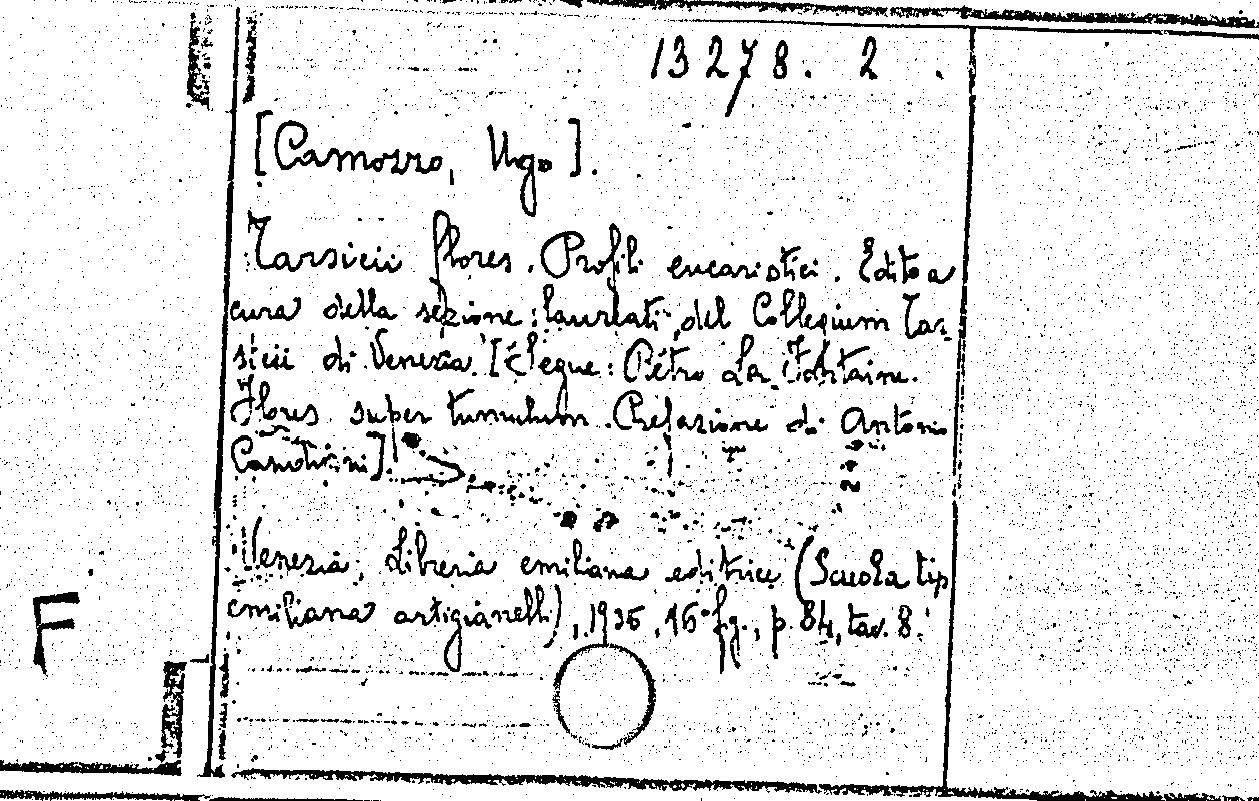 13278. 2 .
[Camozzo, Ugo].
Tarsicii flores. Profili eucaristici. Edito a
cura della sezione laureati del Collegium Tar-
sicii di Venezia. [Segue: Pietro La Fontaine.
Flores super tumulum. Prefazione di Antonio
Venezia, Libreria emiliana editrice (Scuola tip
emiliana artigianelli), 1935, 16° fig., p. 84, tav. 8.
F